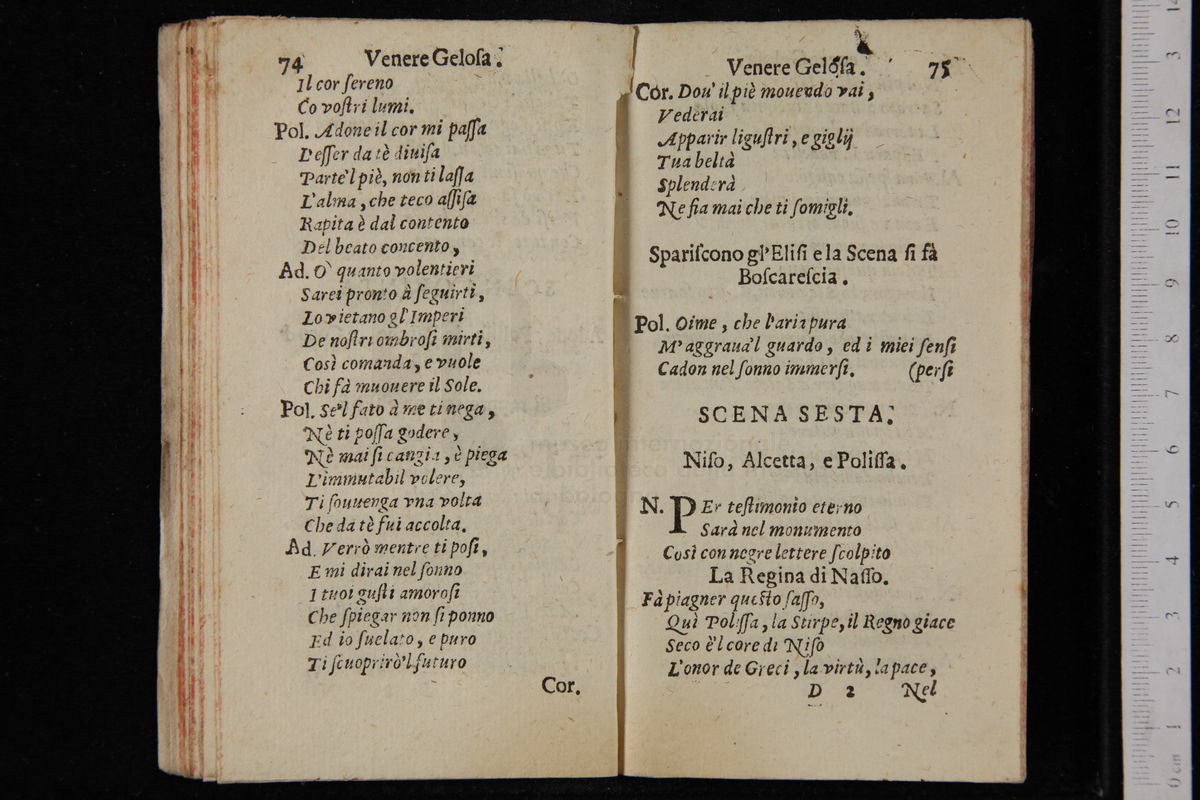 74 Venere Geloſa.
Il cor ſereno
Co voſtri lumi.
Pol. Adone il cor mi paſſa
L'eſſer da tè diuiſa
Parte'l piè, non ti laſſa
L'alma, che teco aſſiſa
Rapita è dal contento
Del beato concento,
Ad. O' quanto volentieri
Sarei pronto à ſeguirti,
Lo vietano gl'Imperi
De noſtri ombroſi mirti,
Così comanda, e vuole
Chi fà muouere il Sole.
Pol. Se'l fato à me ti nega,
Nè ti poſſa godere,
Nè mai ſi cangia, è piega
L'immutabil volere,
Ti ſouuenga vna volta
Che da tè fui accolta.
Ad. Verrò mentre ti poſi,
E mi dirai nel ſonno
I tuoi guſti amoroſi
Che ſpiegar non ſi ponno
Ed io ſuelato, e puro
Ti ſcuoprirò'l futuro
Cor.
Venere Geloſa. 75
Cor. Dou' il piè mouendo vai,
Vederai
Apparir liguſtri, e giglij
Tua beltà
Splenderà
Ne fia mai che ti ſomigli.
Spariſcono gl'Eliſi e la Scena ſi fà
Boſcareſcia.
Pol. Oime, che l'aria pura
M'aggraua'l guardo, ed i miei ſenſi
Cadon nel ſonno immerſi. (perſi
SCENA SESTA.
Niſo, Alcetta, e Poliſſa.
N. PEr teſtimonio eterno
Sarà nel monumento
Così con negre lettere ſcolpito
La Regina di Naſſo.
Fà piagner queſto ſaſſo,
Quì Poliſſa, la Stirpe, il Regno giace
Seco è'l core di Niſo
L'onor de Greci, la virtù, la pace,
D 2 Nel